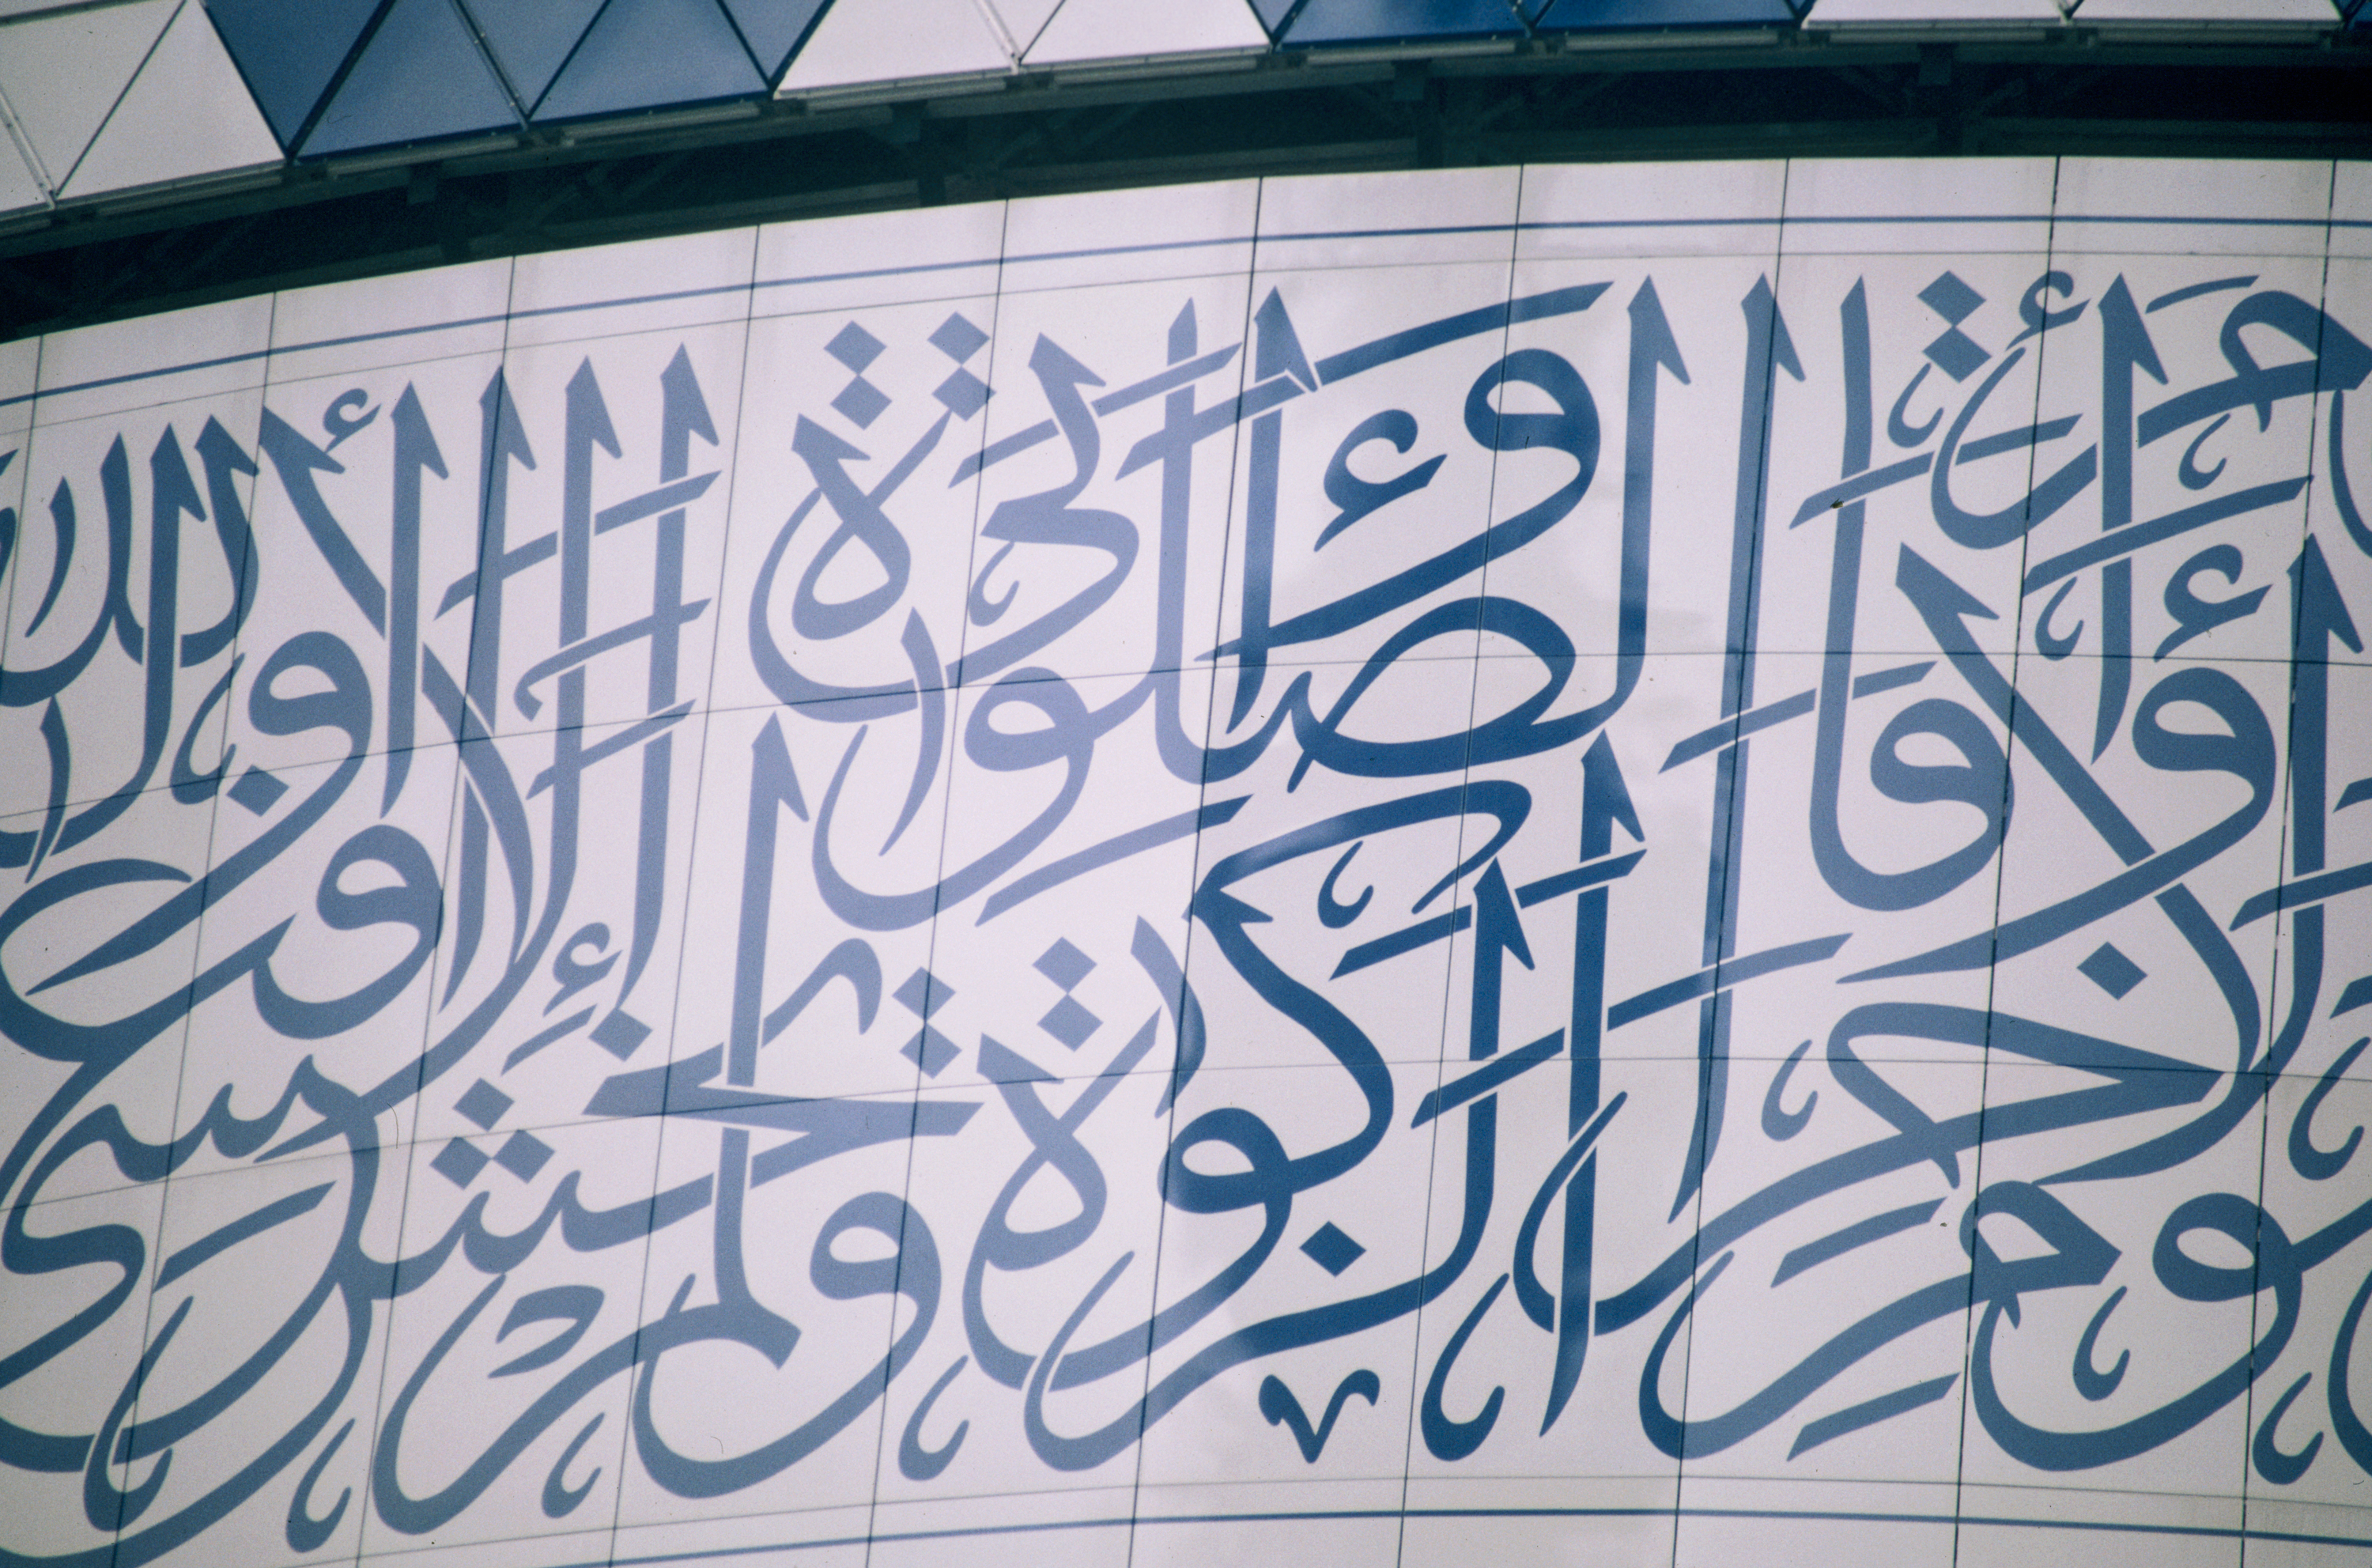 واليوم الآخر وأقام الصلوة وءاتى الزكوة ولم يخش إلا الله فعسى أولئك